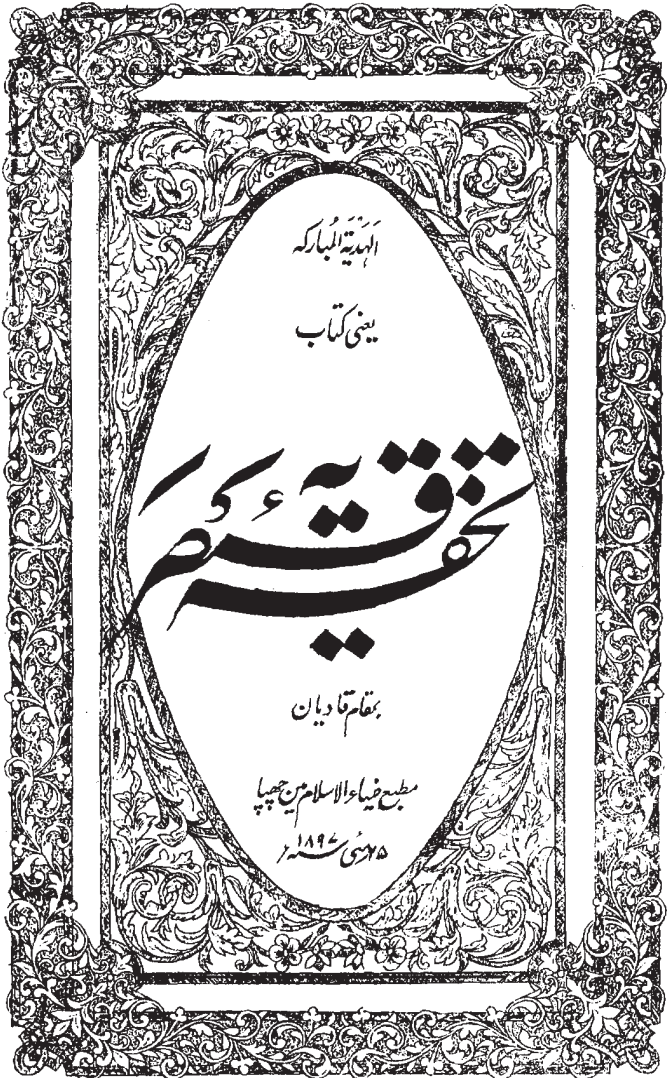 اَلْهَدْيَةُ الْمُبَارَکَہ
یعنی کتاب
تحفہ قیصریہ
بمقام قادیان
مطبع ضیاء الاسلام میں چھپا
۲۵ مئی ۱۸۹۷ء